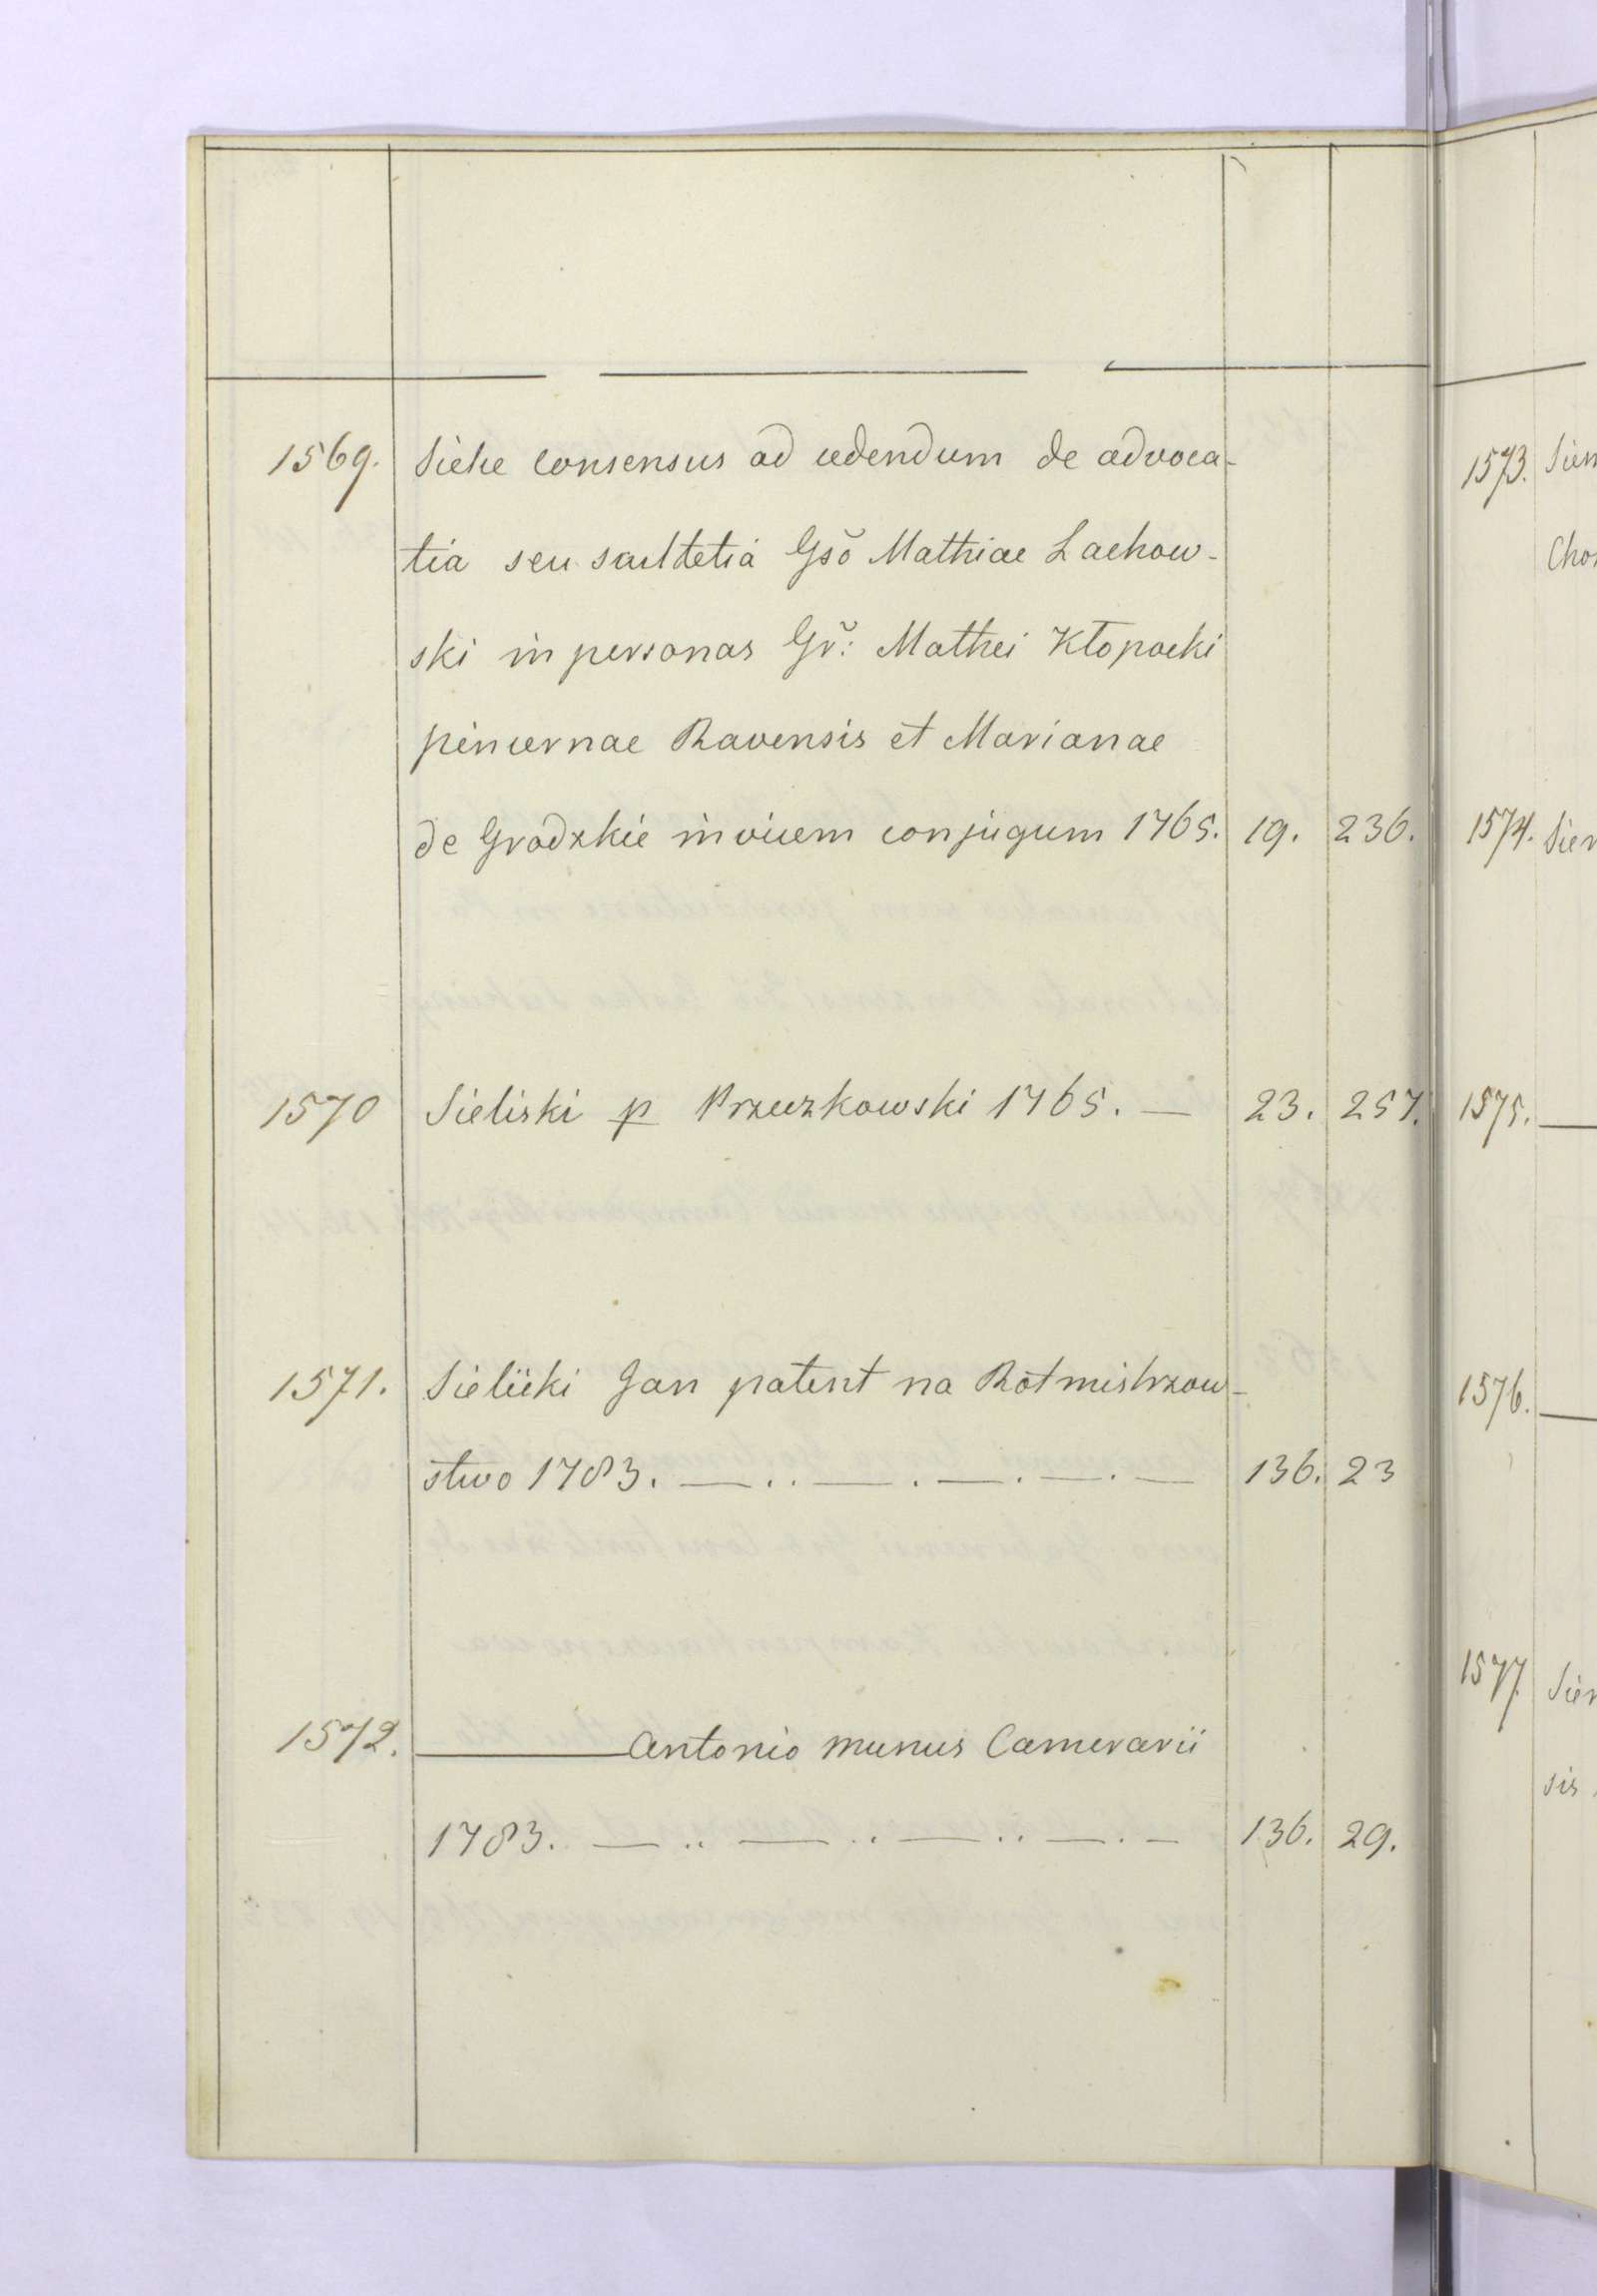 1569. Siche consensus ad cedendum de advoca-
tia seu scultetia Gsō Mathiae Lachow-
ski in personas Gr̃: Mathei Kłopocki
pincernae Ravensis et Marianae
de Grodzkie invicem conjugum 1765. 19. 236.
1570 Sieliski p Przeczkowski 1765. — 23. 257.
1571. Sielicki Jan patent na Rotmistrzow-
stwo 1783. — . . — . — . — . — 136. 23
1572. — Antonio munus Camerarii
1783. — .. — .. — .. — . — 136. 29.
1573. Siem
Cho
1574. Sier
1575. —
1576. —
1577 Sier
sis